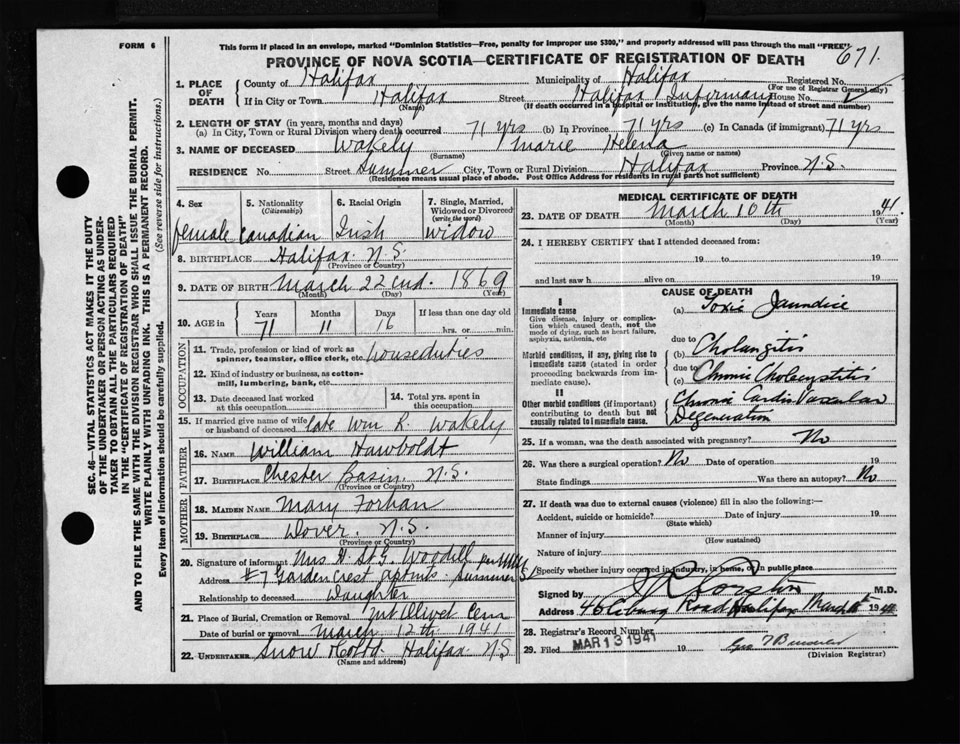 FORM 6
This form if placed in an envelope, marked "Dominion Statistics—Free, penalty for improper use $300," and properly addressed will pass through the mail "FREE"
PROVINCE OF NOVA SCOTIA—CERTIFICATE OF REGISTRATION OF DEATH
671.
1. PLACE OF DEATH
County of Halifax Municipality of Halifax Registered No.
(For use of Registrar General only)
If in City or Town Halifax Street Halifax Infirmary House No.
(Name) (If death occurred in a hospital or institution, give the name instead of street and number)
2. LENGTH OF STAY (in years, months and days)
(a) In City, Town or Rural Division where death occurred 71 yrs (b) In Province 71 yrs (c) In Canada (if immigrant) 71 yrs
3. NAME OF DECEASED Wakely Marie Helena
(Surname) (Given name or names)
RESIDENCE No. Street Summer City, Town or Rural Division Halifax Province N.S.
(Residence means usual place of abode. Post Office Address for residents in rural parts not sufficient)
4. Sex female
5. Nationality (Citizenship) Canadian
6. Racial Origin Irish
7. Single, Married, Widowed or Divorced (write the word) Widow
8. BIRTHPLACE Halifax N.S.
(Province or Country)
9. DATE OF BIRTH March 22nd. 1869
(Month) (Day) (Year)
10. AGE in Years Months Days If less than one day old
71 11 16 hrs. or min.
OCCUPATION
11. Trade, profession or kind of work as spinner, teamster, office clerk, etc. houseduties
12. Kind of industry or business, as cotton-mill, lumbering, bank, etc.
13. Date deceased last worked at this occupation
14. Total yrs. spent in this occupation
15. If married give name of wife or husband of deceased late Wm K. Wakely
FATHER
16. NAME William Hawboldt
17. BIRTHPLACE Chester Basin N.S.
(Province or Country)
MOTHER
18. MAIDEN NAME Mary Forhan
19. BIRTHPLACE Dover N.S.
(Province or Country)
20. Signature of informant Mrs H. St G. Woodill per
Address #7 Garden Crest Aptmts. Summer St
Relationship to deceased Daughter
21. Place of Burial, Cremation or Removal Mt Olivet Cem
Date of burial or removal March 12th 1941
22. UNDERTAKER Snow & Co Ltd. Halifax N.S
(Name and address)
MEDICAL CERTIFICATE OF DEATH
23. DATE OF DEATH March 10th 1941.
(Month) (Day) (Year)
24. I HEREBY CERTIFY that I attended deceased from:
19 to 19
and last saw h alive on 19
CAUSE OF DEATH
I
Immediate cause
Give disease, injury or complication which caused death, not the mode of dying, such as heart failure, asphyxia, asthenia, etc
(a) Toxic Jaundice
due to
Morbid conditions, if any, giving rise to immediate cause (stated in order proceeding backwards from immediate cause).
(b) Cholangitis
due to
(c) Chronic Cholecystitis
II
Other morbid conditions (if important) contributing to death but not causally related to immediate cause.
Chronic Cardio Vascular
Degeneration
25. If a woman, was the death associated with pregnancy? No
26. Was there a surgical operation? No Date of operation 19
State findings Was there an autopsy? No
27. If death was due to external causes (violence) fill in also the following:—
Accident, suicide or homicide? Date of injury 19
(State which)
Manner of injury
(How sustained)
Nature of injury
Specify whether injury occurred in industry, in home, or in public place
Signed by M.D.
Address 46 Coburg Road Halifax March 19
28. Registrar's Record Number
29. Filed MAR 13 1941 19
(Division Registrar)
SEC. 46—VITAL STATISTICS ACT MAKES IT THE DUTY
OF THE UNDERTAKER OR PERSON ACTING AS UNDERTAKER TO OBTAIN ALL THE PARTICULARS REQUIRED
IN THE "CERTIFICATE OF REGISTRATION OF DEATH"
AND TO FILE THE SAME WITH THE DIVISION REGISTRAR WHO SHALL ISSUE THE BURIAL PERMIT.
WRITE PLAINLY WITH UNFADING INK. THIS IS A PERMANENT RECORD.
Every item of information should be carefully supplied. (See reverse side for instructions.)